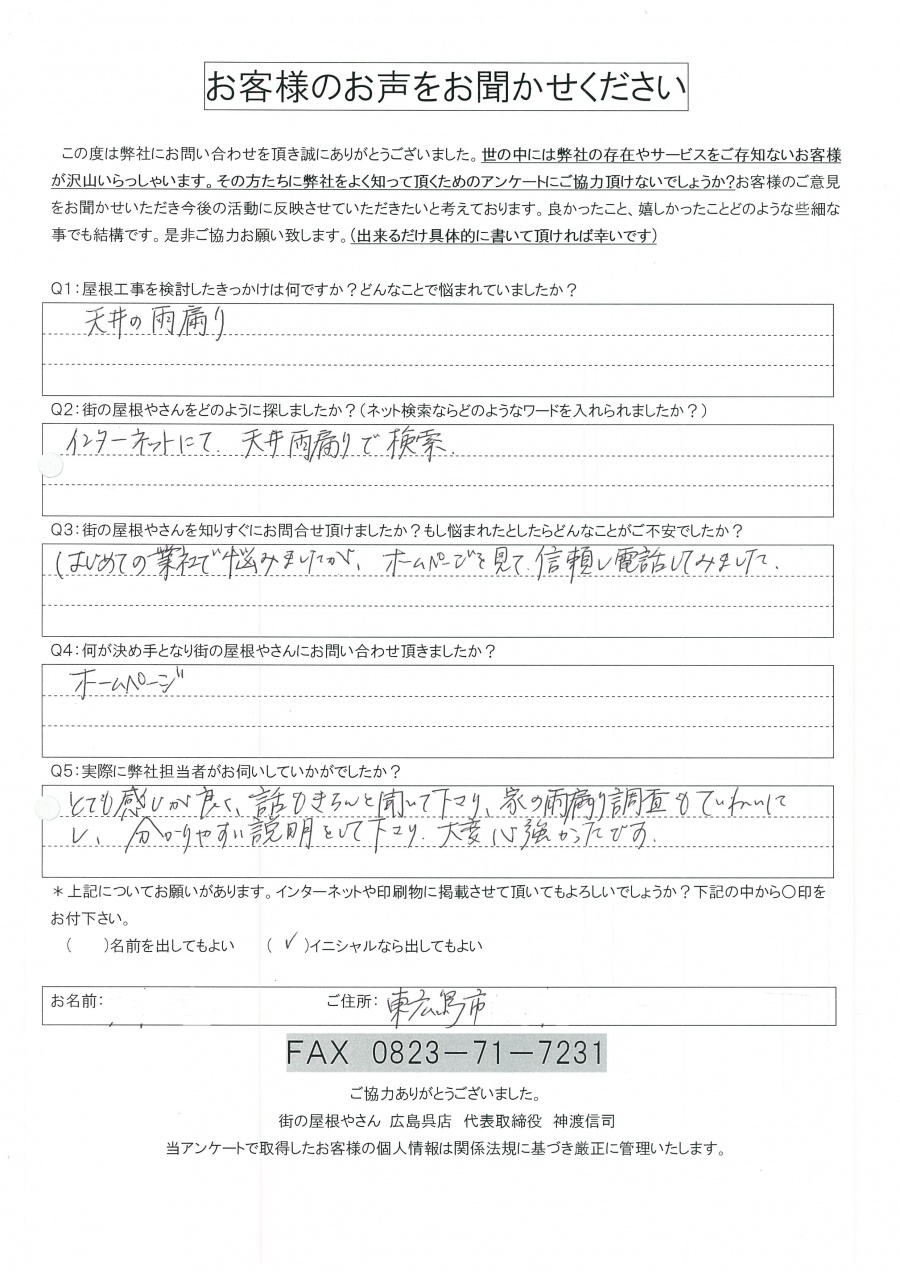 お客様のお声をお聞かせください
この度は弊社にお問い合わせを頂き誠にありがとうございました。世の中には弊社の存在やサービスをご存知ないお客様
が沢山いらっしゃいます。その方たちに弊社をよく知って頂くためのアンケートにご協力頂けないでしょうか?お客様のご意見
をお聞かせいただき今後の活動に反映させていただきたいと考えております。良かったこと、嬉しかったことどのような些細な
事でも結構です。是非ご協力お願い致します。(出来るだけ具体的に書いて頂ければ幸いです)
Q1:屋根工事を検討したきっかけは何ですか?どんなことで悩まれていましたか?
天井の雨漏り
Q2:街の屋根やさんをどのように探しましたか?(ネット検索ならどのようなワードを入れられましたか?)
インターネットにて、天井雨漏りで検索.
Q3:街の屋根やさんを知りすぐにお問合せ頂けましたか?もし悩まれたとしたらどんなことがご不安でしたか?
はじめての業社で悩みましたが、ホームページを見て、信頼し電話してみました.
Q4:何が決め手となり街の屋根やさんにお問い合わせ頂きましたか?
ホームページ
Q5:実際に弊社担当者がお伺いしていかがでしたか?
とても感じが良く、話もきちんと聞いて下さり、家の雨漏り調査もていねいに
し、分かりやすい説明をして下さり、大変心強かったです.
*上記についてお願いがあります。インターネットや印刷物に掲載させて頂いてもよろしいでしょうか?下記の中から〇印を
お付下さい。
( )名前を出してもよい (✓)イニシャルなら出してもよい
お名前: ご住所: 東広島市
FAX 0823-71-7231
ご協力ありがとうございました。
街の屋根やさん 広島呉店 代表取締役 神渡信司
当アンケートで取得したお客様の個人情報は関係法規に基づき厳正に管理いたします。